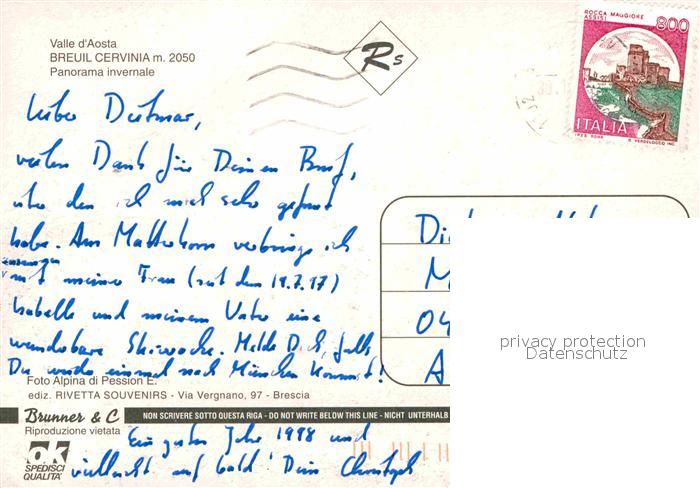 Valle d'Aosta
BREUIL CERVINIA m. 2050
Panorama invernale
Rs
ROCCA MAGGIORE
ASSISI
800
ITALIA
Lieber Dietmar,
vielen Dank für Deinen Brief,
über den ich mich sehr gefreut
habe. Am Matterhorn verbringe ich
zusammen
mit meiner Frau (seit dem 19.7.97)
Isabelle und meinem Vater eine
wunderbare Skiwoche. Melde Dich, falls
Du wieder einmal nach München kommst!
Di
M
04
A
privacy protection
Datenschutz
Foto Alpina di Pession E.
ediz. RIVETTA SOUVENIRS - Via Vergnano, 97 - Brescia
Brunner & C
NON SCRIVERE SOTTO QUESTA RIGA - DO NOT WRITE BELOW THIS LINE - NICHT UNTERHALB
Riproduzione vietata
Ein gutes Jahr 1998 und
ok
SPEDISCI
QUALITA'
vielleicht auf bald! Dein Christoph